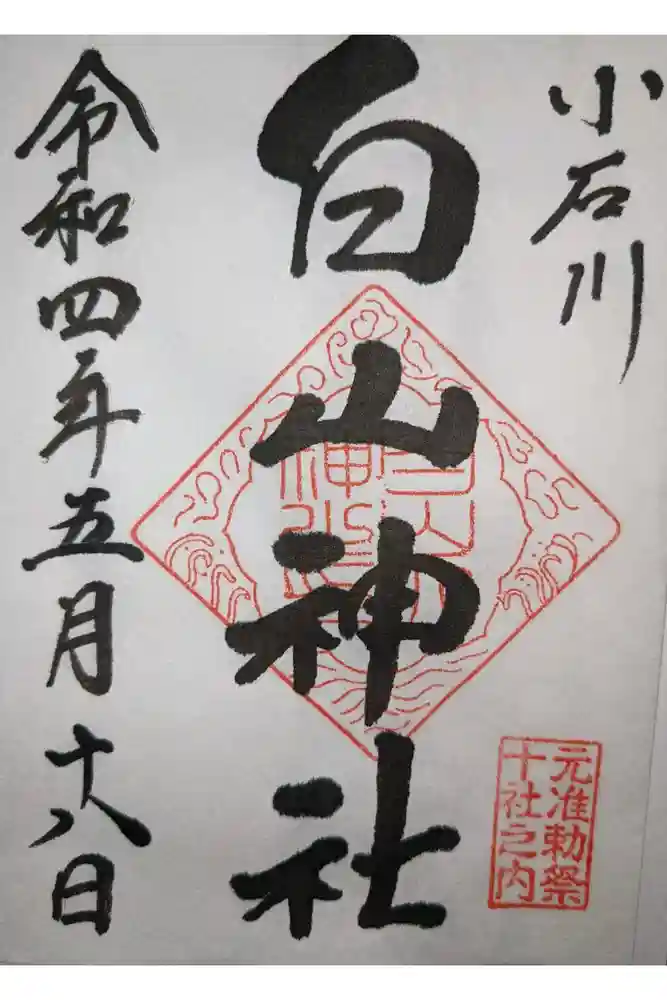 小石川
白山神社
令和四年五月十八日
元准勅祭
十社之内
白山
神社